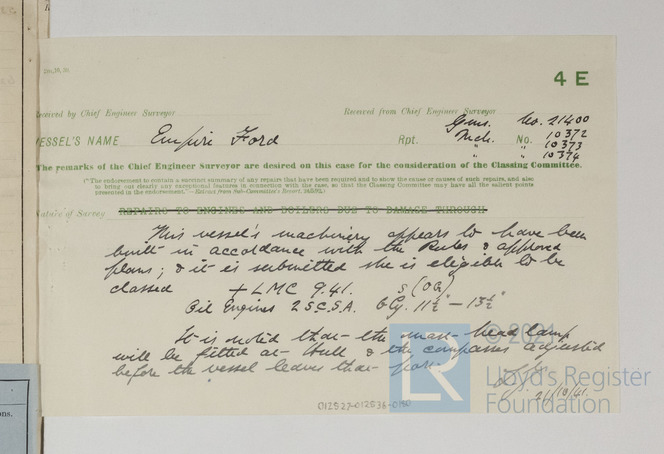 4 E
Received by Chief Engineer Surveyor
Received from Chief Engineer Surveyor
Gms. No. 21400
VESSEL'S NAME Empire Ford Rpt. Mch. No. 10372
" " 10373
" " 10374
The remarks of the Chief Engineer Surveyor are desired on this case for the consideration of the Classing Committee.
(“The endorsement to contain a succinct summary of any repairs that have been required and to show the cause or causes of such repairs, and also
to bring out clearly any exceptional features in connection with the case, so that the Classing Committee may have all the salient points
presented in the endorsement.”—Extract from Sub-Committee's Report,
Nature of Survey REPAIRS TO ENGINES AND BOILERS DUE TO DAMAGE THROUGH
This vessel's machinery appears to have been
built in accordance with the Rules & approved
plans; & it is submitted she is eligible to be
classed + LMC 9.41. S (OG)
Oil Engines 2 S.C.S.A. 6 Cy. 11½" — 13½"
It is noted that the mast head lamp
will be fitted at Hull & the compasses adjusted
before the vessel leaves that port.
21/10/41
© 2021
LR
Lloyd's Register
Foundation
012527-012536-0190
ons.